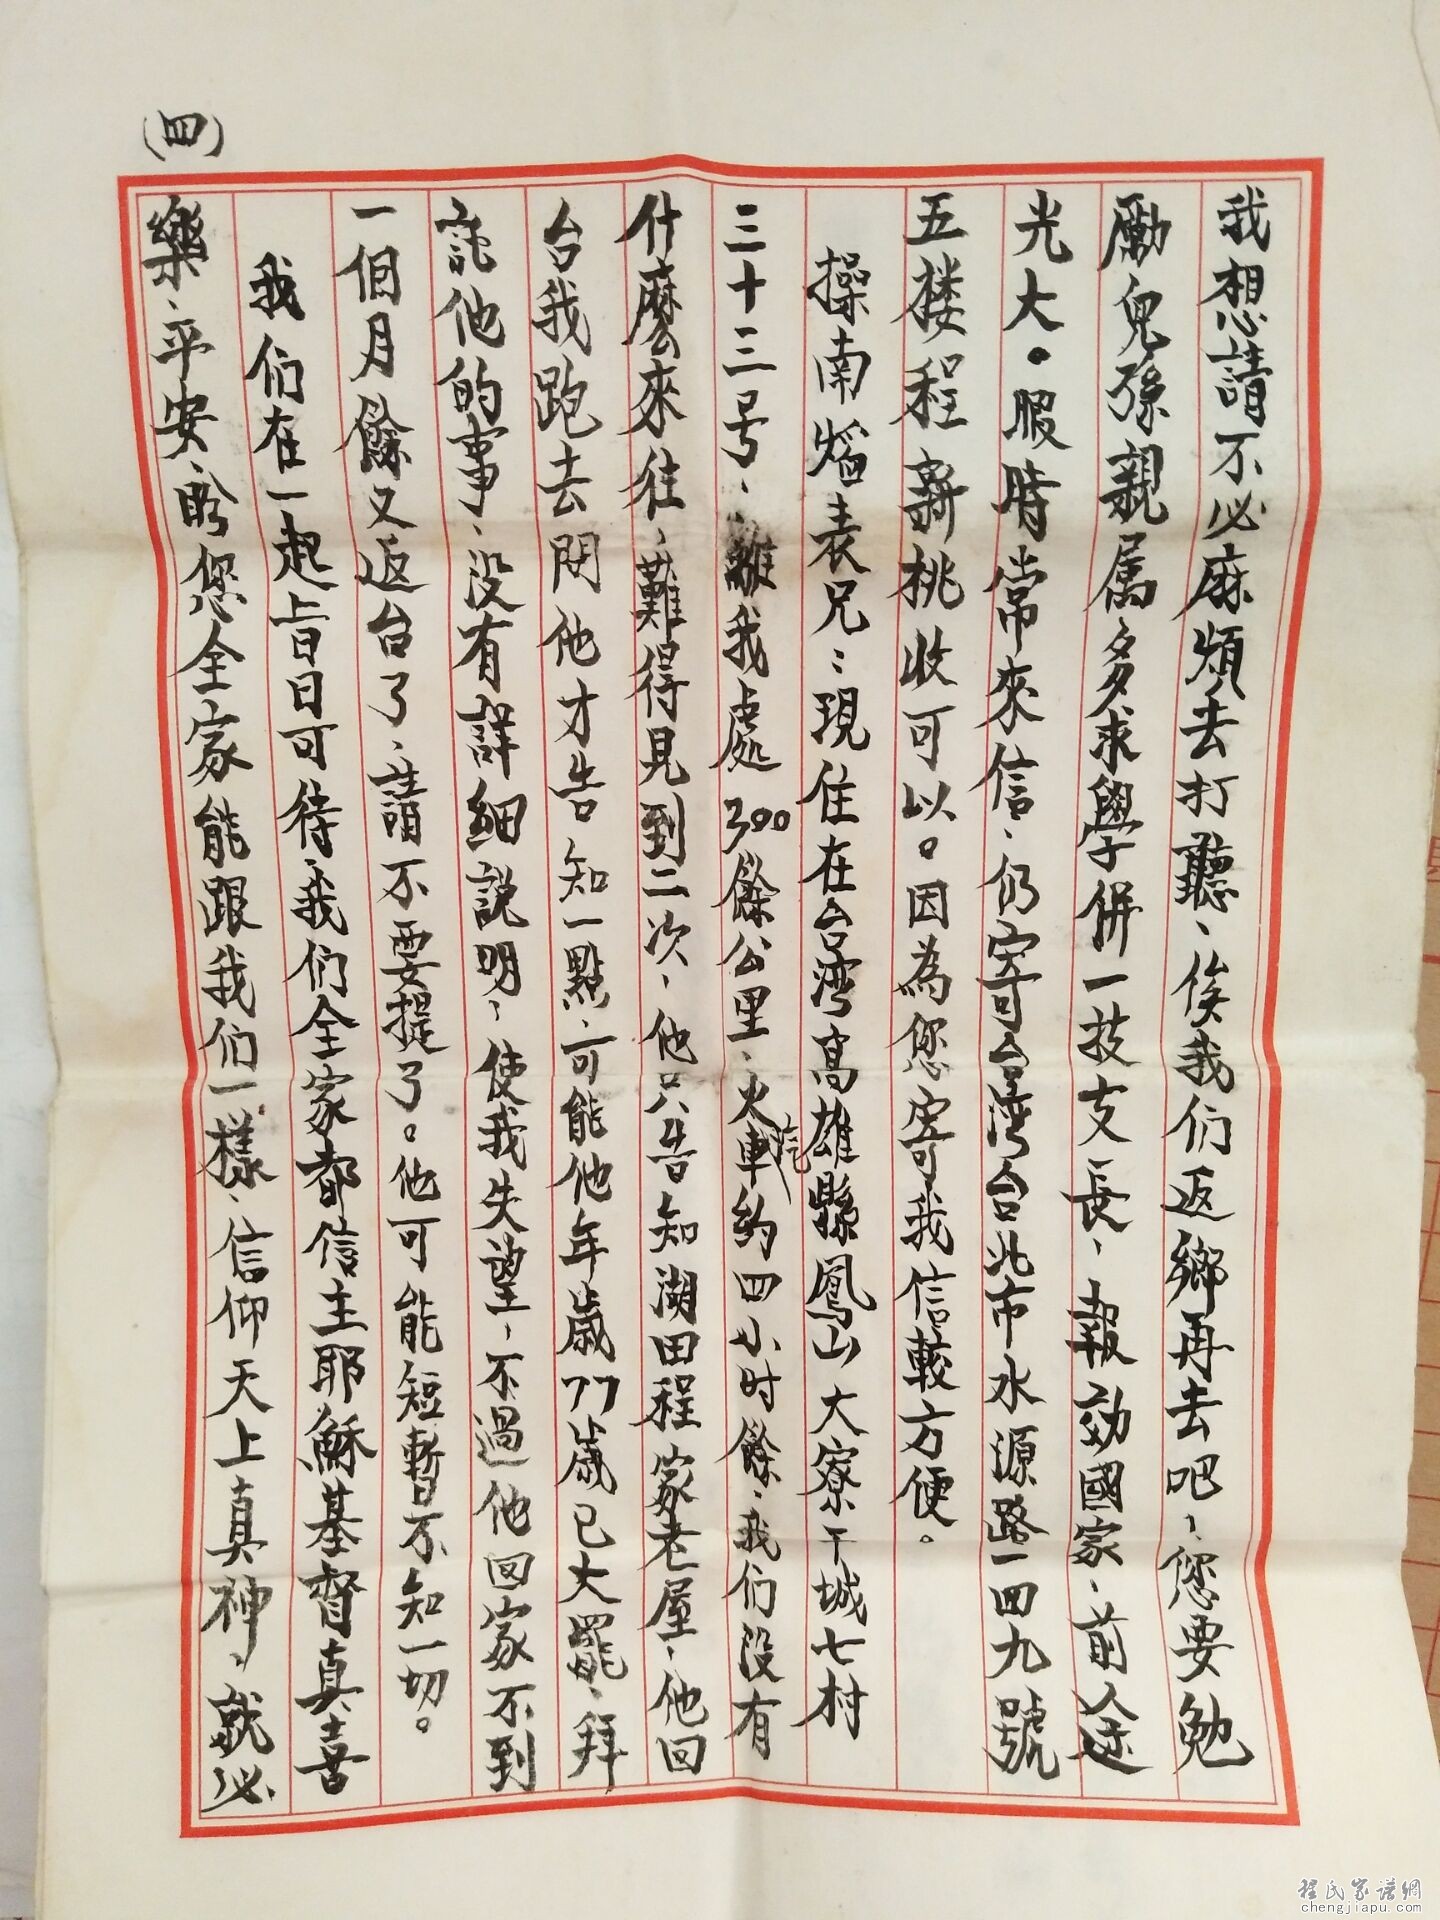 （四）
我想請不必麻煩去打聽、俟我们返鄉再去吧、您要勉
勵兒孫親属多求學併一技支長、報効國家、前途
光大。暇時常來信、仍寄台湾台北市水源路一四九號
五楼程新桃收可以。因為您寄我信較方便。
操南焰表兄：現住在台湾高雄縣鳳山大寮干城七村
三十三号、離我處300餘公里、火車汽約四小时餘、我们没有
什麼來往、難得見到二次、他只告知湖田程家老屋、他回
台我跑去問他才告知一點、可能他年歲77歲已大罷、拜
託他的事、没有詳細説明、使我失望、不過他回家不到
一個月餘又返台了、請不要提了。他可能短暫不知一切。
我们在一起旨日可待、我们全家都信主耶穌基督真喜
樂、平安、盼您全家能跟我们一樣、信仰天上真神、就必
程氏家谱網
chengjiapu.com